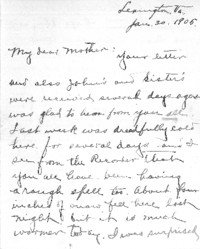 Lexington Va.
Jan. 30. 1905
My dear Mother:
Your letter
and also John's and Sister's
were received several days ago
was glad to hear from you all.
Last week was dreadfully cold
here for several days and I
see from the Recorder that
you all have been having
a rough spell too. About four
inches of snow fell here last
night, but it is much
warmer today. I was surprised